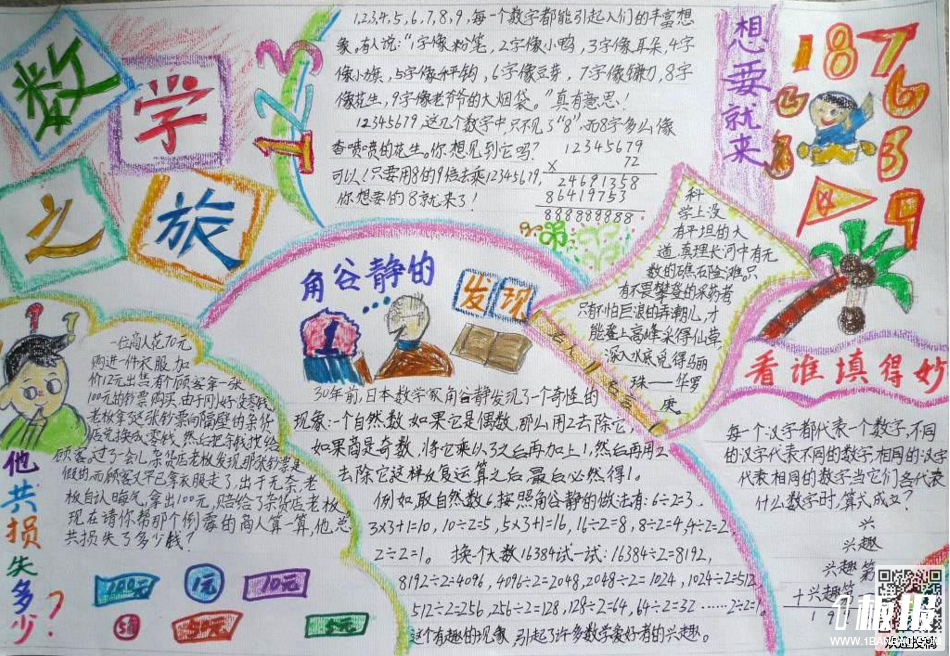 数学之旅
123
1,2,3,4,5,6,7,8,9,每一个数字都能引起人们的丰富想
象,有人说:“1字像粉笔,2字像小鸭,3字像耳朵,4字
像小旗,5字像秤钩,6字像豆芽,7字像镰刀,8字
像花生,9字像老爷爷的大烟袋。”真有意思!
12345679,这几个数字中,只不见了“8”,而8字多么像
香喷喷的花生。你想见到它吗?
可以!只要用8的9倍去乘12345679,
你想要的8就来了!
12345679
× 72
24691358
86419753
888888888
想要就来
1 8 7
6
3
9
8
科
学上没
有平坦的大
道,真理长河中有无
数的礁石险滩。只
有不畏攀登的采药者
只有不怕巨浪的弄潮儿,才
能登上高峰采得仙草
深入水底觅得骊
珠——华罗
庚
名人名言
角谷静的
发现
30年前,日本数学家角谷静发现了一个奇怪的
现象:一个自然数,如果它是偶数,那么用2去除它,
如果商是奇数,将它乘以3之后再加上1,然后再用2
去除它这样反复运算之后,最后必然得1。
例如,取自然数6,按照角谷静的做法有:6÷2=3,
3×3+1=10,10÷2=5,5×3+1=16,16÷2=8,8÷2=4,4÷2=2
2÷2=1。 换个大数16384试一试:16384÷2=8192,
8192÷2=4096,4096÷2=2048,2048÷2=1024,1024÷2=512
512÷2=256,256÷2=128,128÷2=64,64÷2=32……2÷2=1,
这个有趣的现象,引起了许多数学爱好者的兴趣。
一位商人花70元
购进一件衣服,加
价12元出售,有个顾客拿一张
100元的钞票购买,由于刚好没零钱,
老板拿这张钞票向隔壁的杂货
店兑换成零钱,然后把零钱找给
顾客,过了一会儿,杂货店老板发现那张钞票是
假的,而顾客又早已拿衣服走了,出于无奈,老
板自认晦气,拿出100元,赔给了杂货店老板,
现在请你帮那个倒霉的商人算一算,他总
共损失了多少钱?
他共损失多少?
100元
1元
10元
看谁填得妙
每一个汉字都代表一个数字,不同
的汉字代表不同的数字,相同的汉字
代表相同的数字,当它们各代表
什么数字时,算式成立?
兴
兴趣
兴趣第
+兴趣第
1板报
WWW.1BANBAO.COM
欢迎投稿